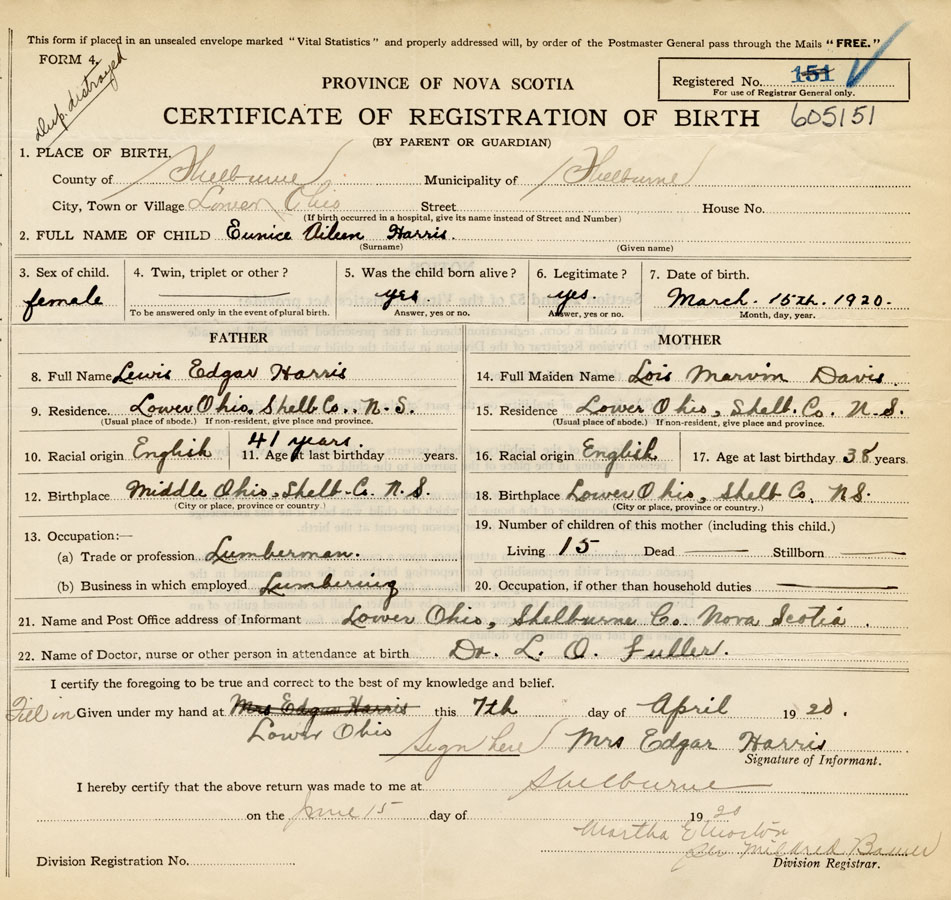 This form if placed in an unsealed envelope marked "Vital Statistics" and properly addressed will, by order of the Postmaster General pass through the Mails "FREE."
FORM 4.
Dup. destroyed
PROVINCE OF NOVA SCOTIA
Registered No. 151
For use of Registrar General only.
CERTIFICATE OF REGISTRATION OF BIRTH 605151
(BY PARENT OR GUARDIAN)
1. PLACE OF BIRTH,
County of Shelburne Municipality of Shelburne
City, Town or Village Lower Ohio Street House No.
(If birth occurred in a hospital, give its name instead of Street and Number)
2. FULL NAME OF CHILD Eunice Aileen Harris.
(Surname) (Given name)
3. Sex of child. 4. Twin, triplet or other? 5. Was the child born alive? 6. Legitimate? 7. Date of birth.
female yes. yes. March. 15th. 1920.
To be answered only in the event of plural birth. Answer, yes or no. Answer, yes or no. Month, day, year.
FATHER MOTHER
8. Full Name Lewis Edgar Harris 14. Full Maiden Name Lois Marvin Davis.
9. Residence. Lower Ohio. Shelb Co.. N-S. 15. Residence Lower Ohio, Shelb. Co. N.S.
(Usual place of abode.) If non-resident, give place and province. (Usual place of abode.) If non-resident, give place and province.
10. Racial origin English 11. Age at last birthday 41 years. years. 16. Racial origin English 17. Age at last birthday 38 years.
12. Birthplace Middle Ohio, Shelb-Co. N.S. 18. Birthplace Lower Ohio, Shelb Co. NS.
(City or place, province or country) (City or place, province or country.)
13. Occupation:— 19. Number of children of this mother (including this child.)
(a) Trade or profession Lumberman. Living 15 Dead — Stillborn —
(b) Business in which employed Lumbering 20. Occupation, if other than household duties —
21. Name and Post Office address of Informant Lower Ohio, Shelburne Co. Nova Scotia.
22. Name of Doctor, nurse or other person in attendance at birth Dr. L. O. Fuller.
I certify the foregoing to be true and correct to the best of my knowledge and belief.
Fill in Given under my hand at Mrs Edgar Harris this 7th day of April 1920.
Lower Ohio Sign here Mrs Edgar Harris
Signature of Informant.
I hereby certify that the above return was made to me at Shelburne
on the June 15 day of 1920
Martha E Morton
per Mildred Bower
Division Registration No. Division Registrar.